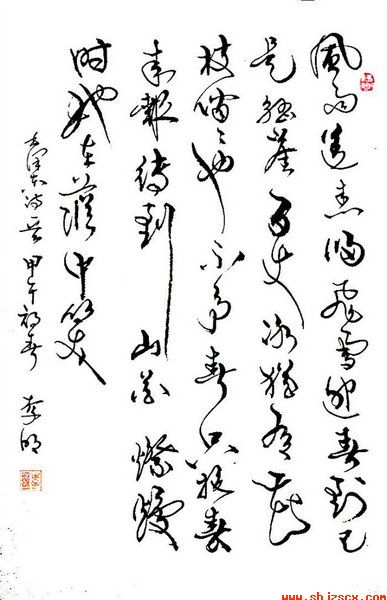 風雨送春歸飛雪迎春到已
是懸崖百丈冰猶有花
枝俏〻也不争春只把春
来報待到山花爛漫
时她在叢中笑
毛泽东诗 甲午初春 李明
www.shjzscx.com